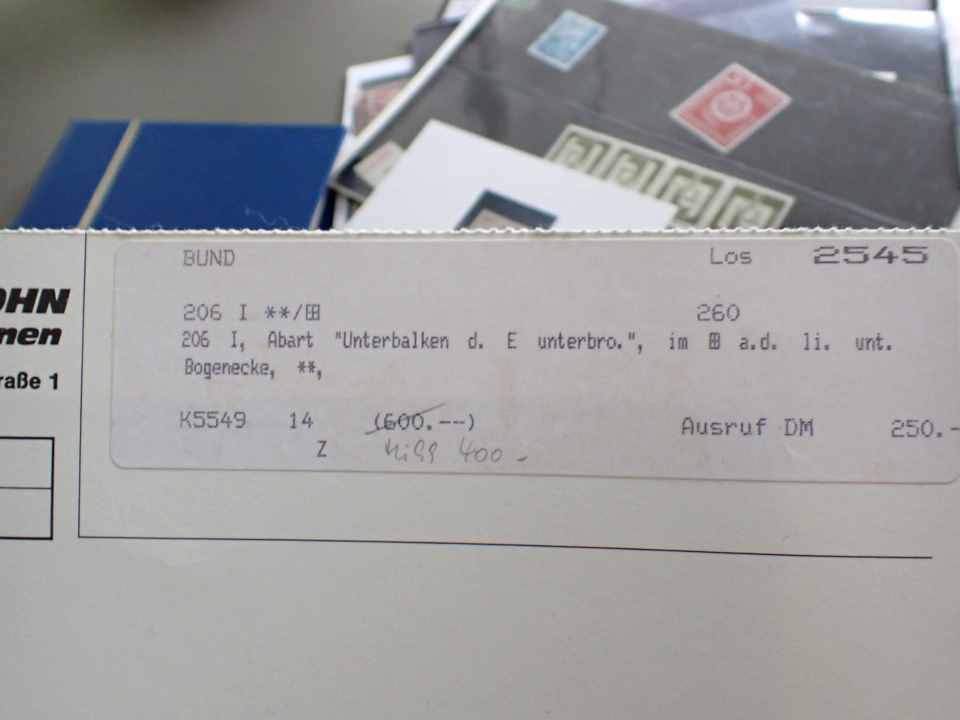 BUND Los 2545
OHN
206 I **/⊞ 260
206 I, Abart "Unterbalken d. E unterbro.", im ⊞ a.d. li. unt.
men
Bogenecke, **,
raße 1
K5549 14 (600.--) Ausruf DM 250.-
Z 400 -